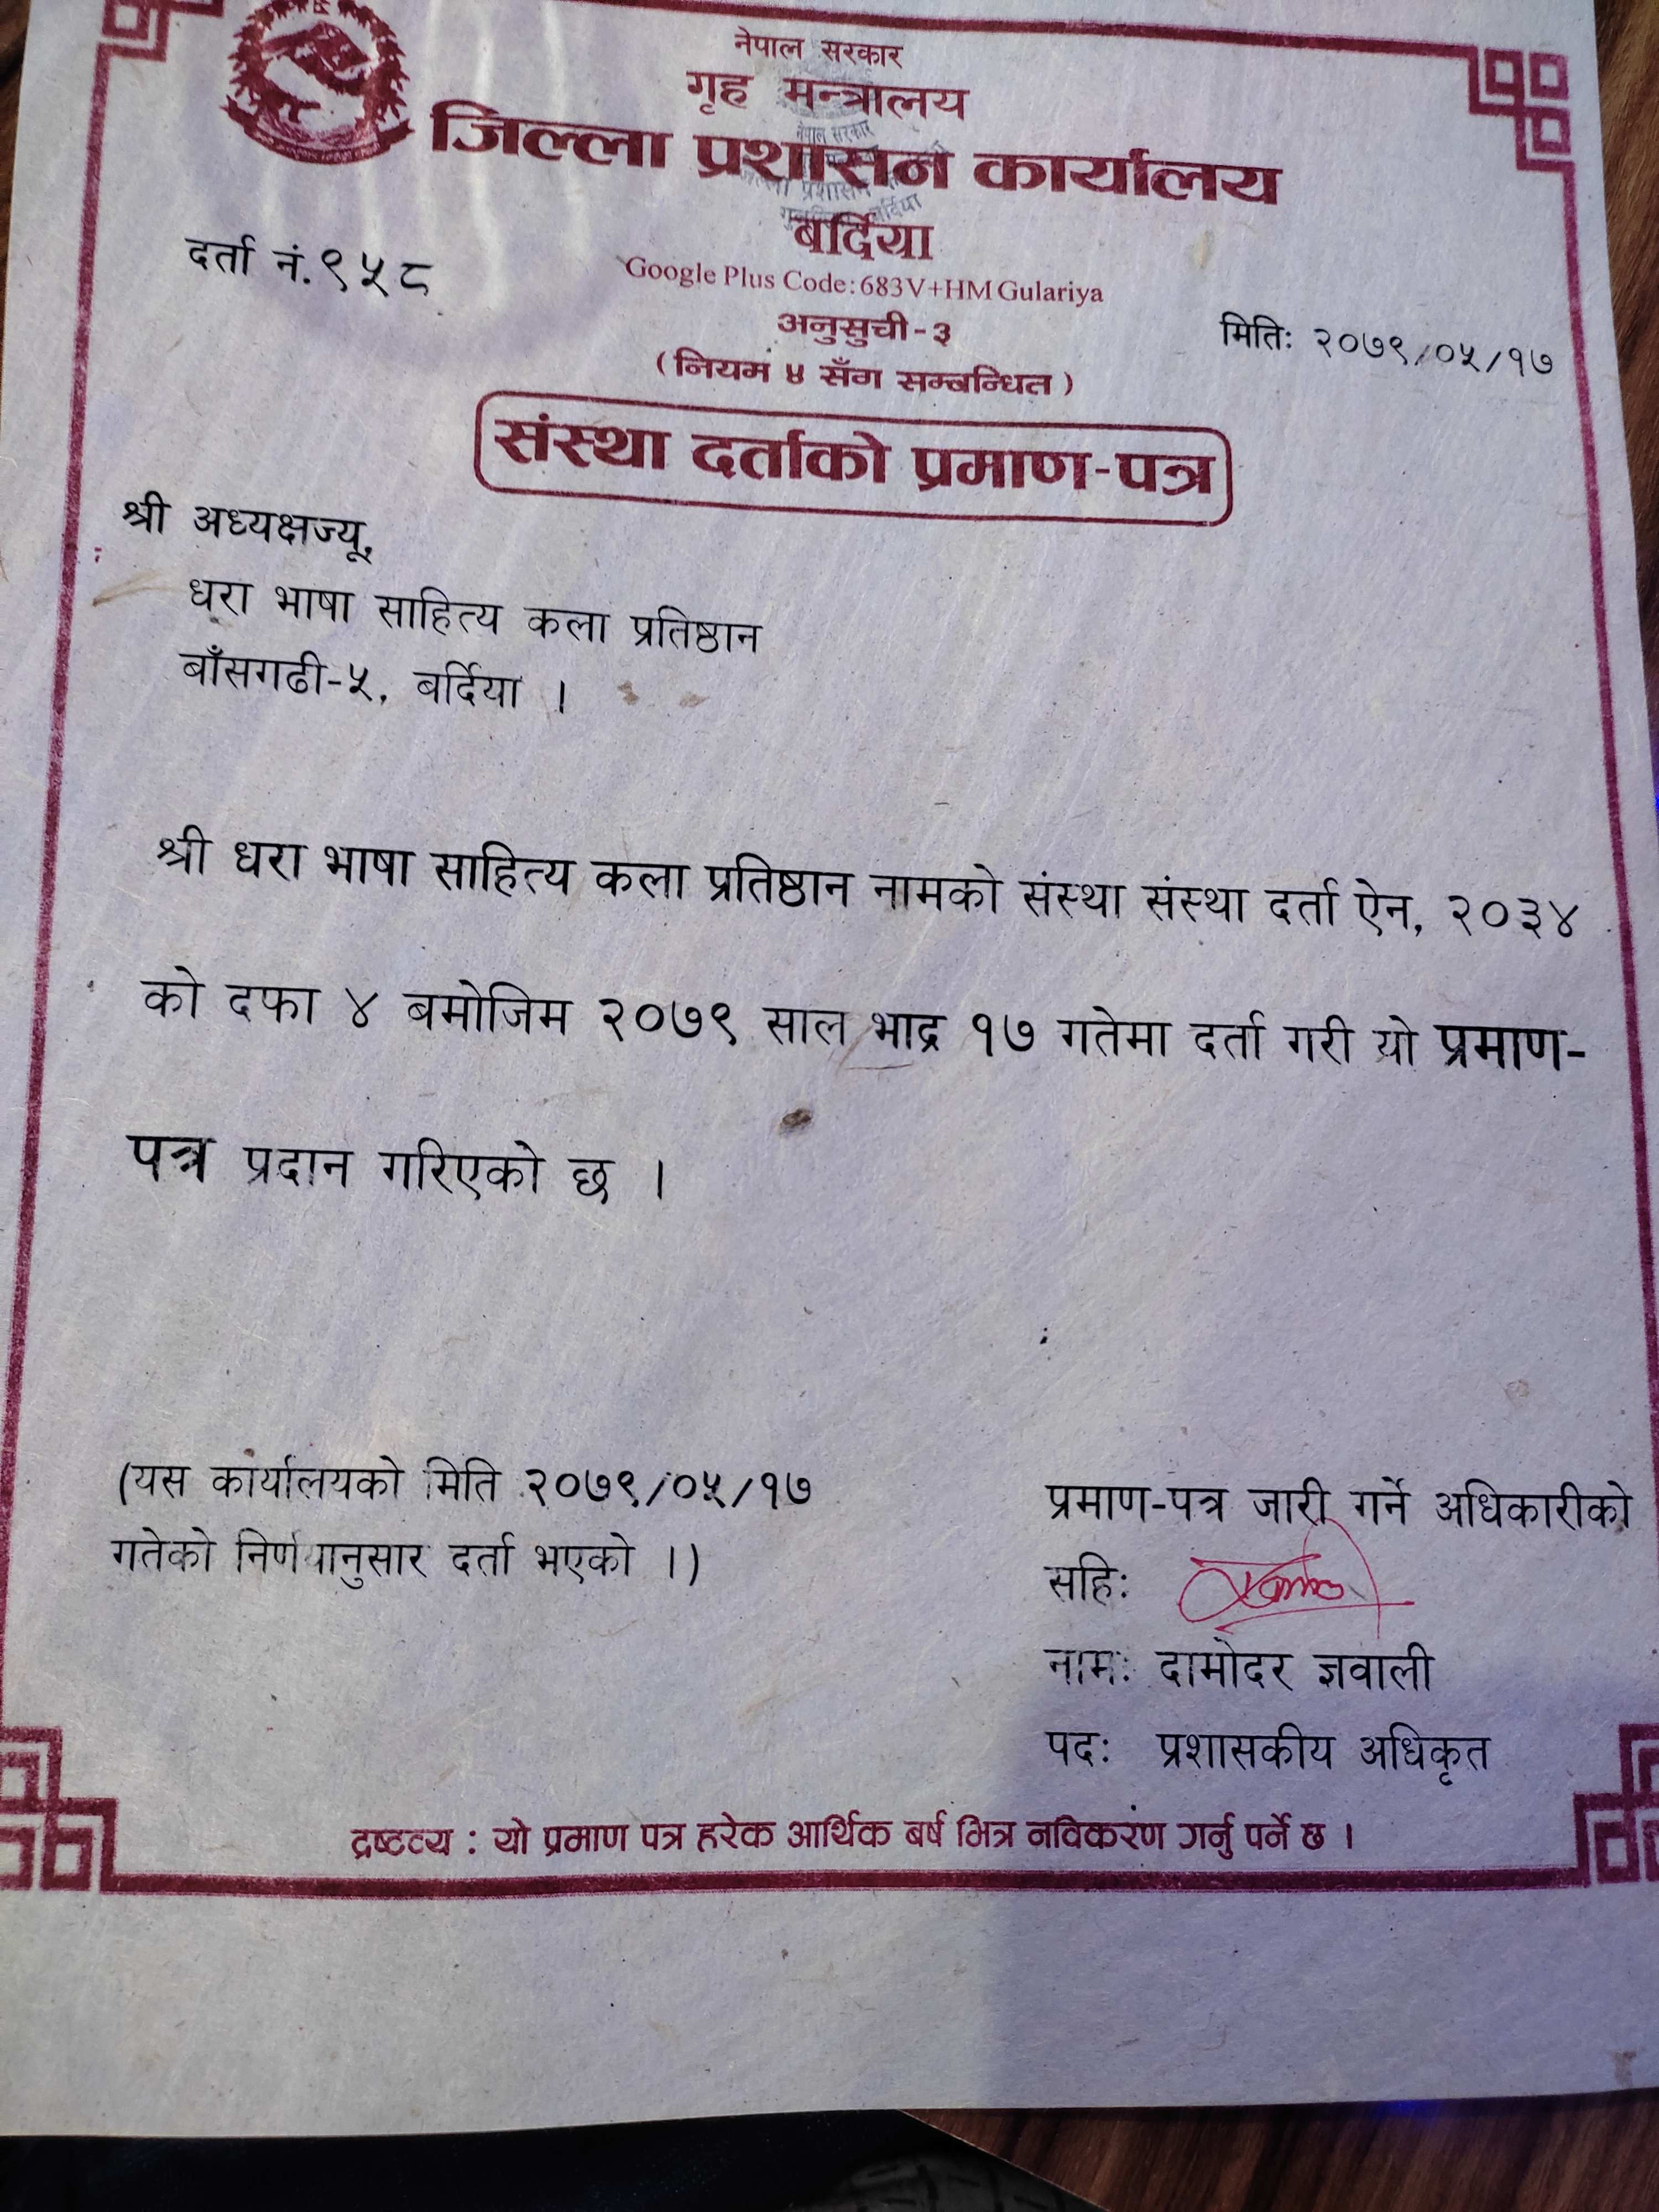 नेपाल सरकार
गृह मन्त्रालय
जिल्ला प्रशासन कार्यालय
बर्दिया
Google Plus Code:683V+HM Gulariya
दर्ता नं.९५८
अनुसुची-३
मितिः २०७९/०५/१७
(नियम ४ सँग सम्बन्धित)
संस्था दर्ताको प्रमाण-पत्र
श्री अध्यक्षज्यू,
धरा भाषा साहित्य कला प्रतिष्ठान
बाँसगढी-५, बर्दिया ।
श्री धरा भाषा साहित्य कला प्रतिष्ठान नामको संस्था संस्था दर्ता ऐन, २०३४
को दफा ४ बमोजिम २०७९ साल भाद्र १७ गतेमा दर्ता गरी यो प्रमाण-
पत्र प्रदान गरिएको छ ।
(यस कार्यालयको मिति २०७९/०५/१७
गतेको निर्णयानुसार दर्ता भएको ।)
प्रमाण-पत्र जारी गर्ने अधिकारीको
सहिः
नामः दामोदर ज्ञवाली
पदः प्रशासकीय अधिकृत
द्रष्टव्य : यो प्रमाण पत्र हरेक आर्थिक बर्ष भित्र नविकरण गर्नु पर्ने छ ।